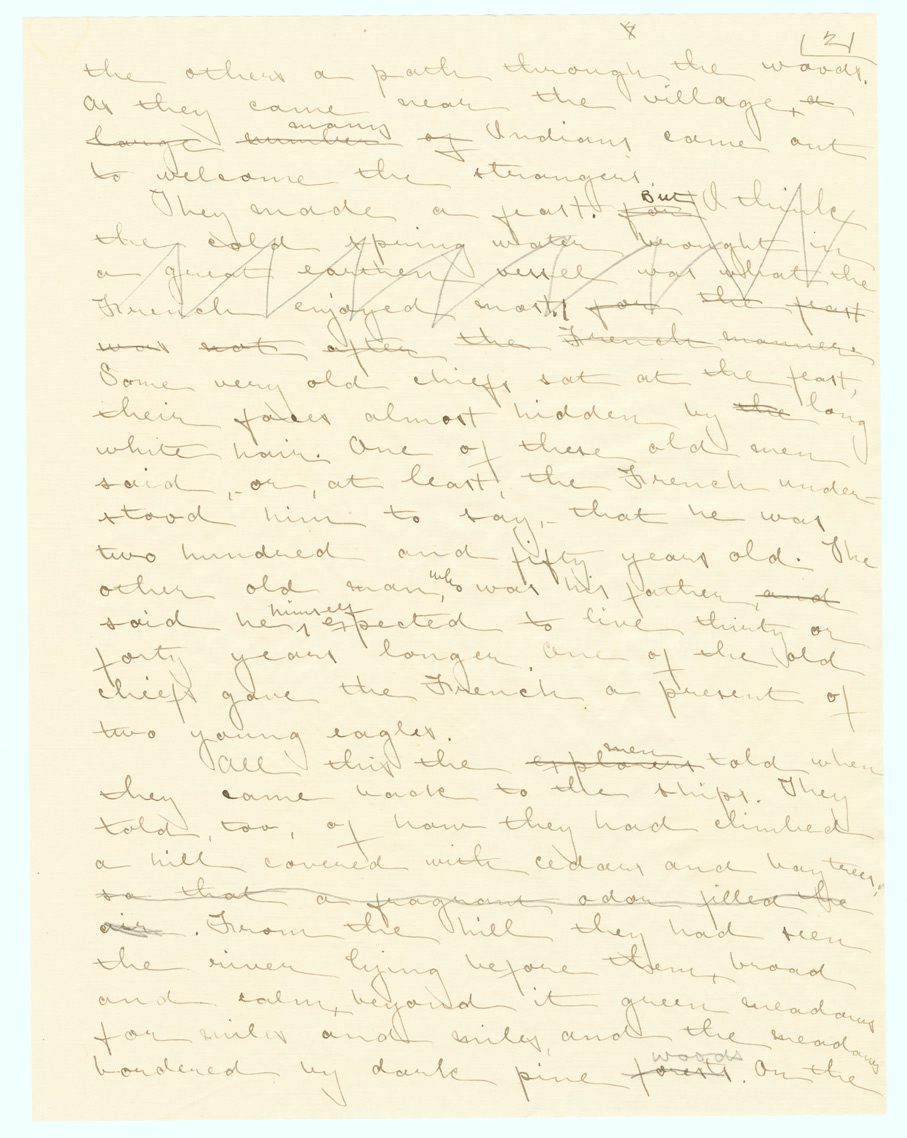 2
the others a path through the woods.
As they came near the village, a
many
large number of Indians came out
to welcome the strangers.
But
They made a feast. for I think
the cold spring water brought in
a great earthen vessel was what the
French enjoyed most, for the feast
was not after the French manner.
Some very old chiefs sat at the feast,
their faces almost hidden by the long
white hair. One of these old men
said, - or, at least, the French under-
stood him to say, - that he was
two hundred and fifty years old. The
who
other old man, was his father, and
himself
said he expected to live thirty or
forty years longer. One of the old
chiefs gave the French a present of
two young eagles.
men
All this the explorers told when
they came back to the ships. They
told, too, of how they had climbed
a hill covered with cedars and bay trees,
so that a fragrant odor filled the
air. From the hill they had seen
the river lying before them, broad
and calm, beyond it green meadows
for miles and miles, and the meadows
woods
bordered by dark pine forests. On the